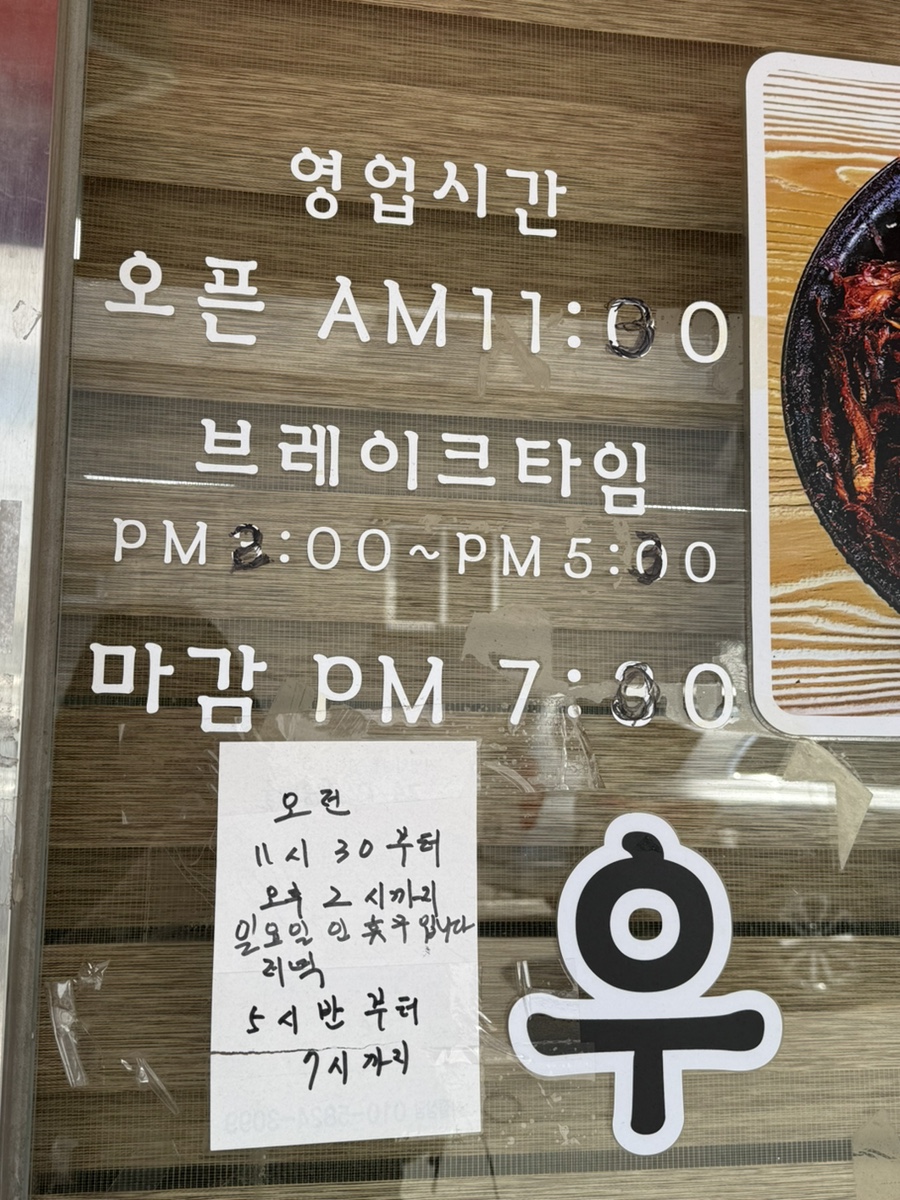 영업시간
오픈 AM11:30
브레이크타임
PM 2:00~PM 5:30
마감 PM 7:00
오전
11시 30부터
오후 2시까지
일요일 입니다
저녁
5시 반부터
7시까지
우